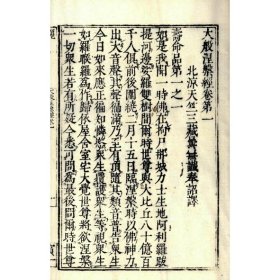 大般涅槃經卷第一
北涼天竺三藏曇無讖奉詔譯
壽命品第一之一
如是我聞一時佛在拘尸那城力士生地阿利羅跋
提河邊娑羅雙樹間爾時世尊與大比丘八十億百
千人俱前後圍繞二月十五日臨涅槃時以佛神力
出大音聲其聲徧滿乃至有頂隨其類音普告眾生
今日如來應正徧知憐愍眾生覆護眾生等視眾生
如羅睺羅為作歸依屋舍室宅大覺世尊將欲涅槃
一切眾生若有所疑今悉可問為最後問爾時世尊